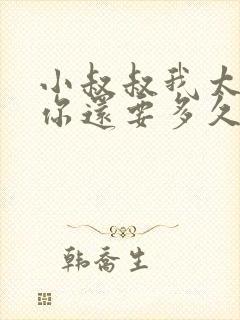 小叔叔我太
你還要多久
韩乔生